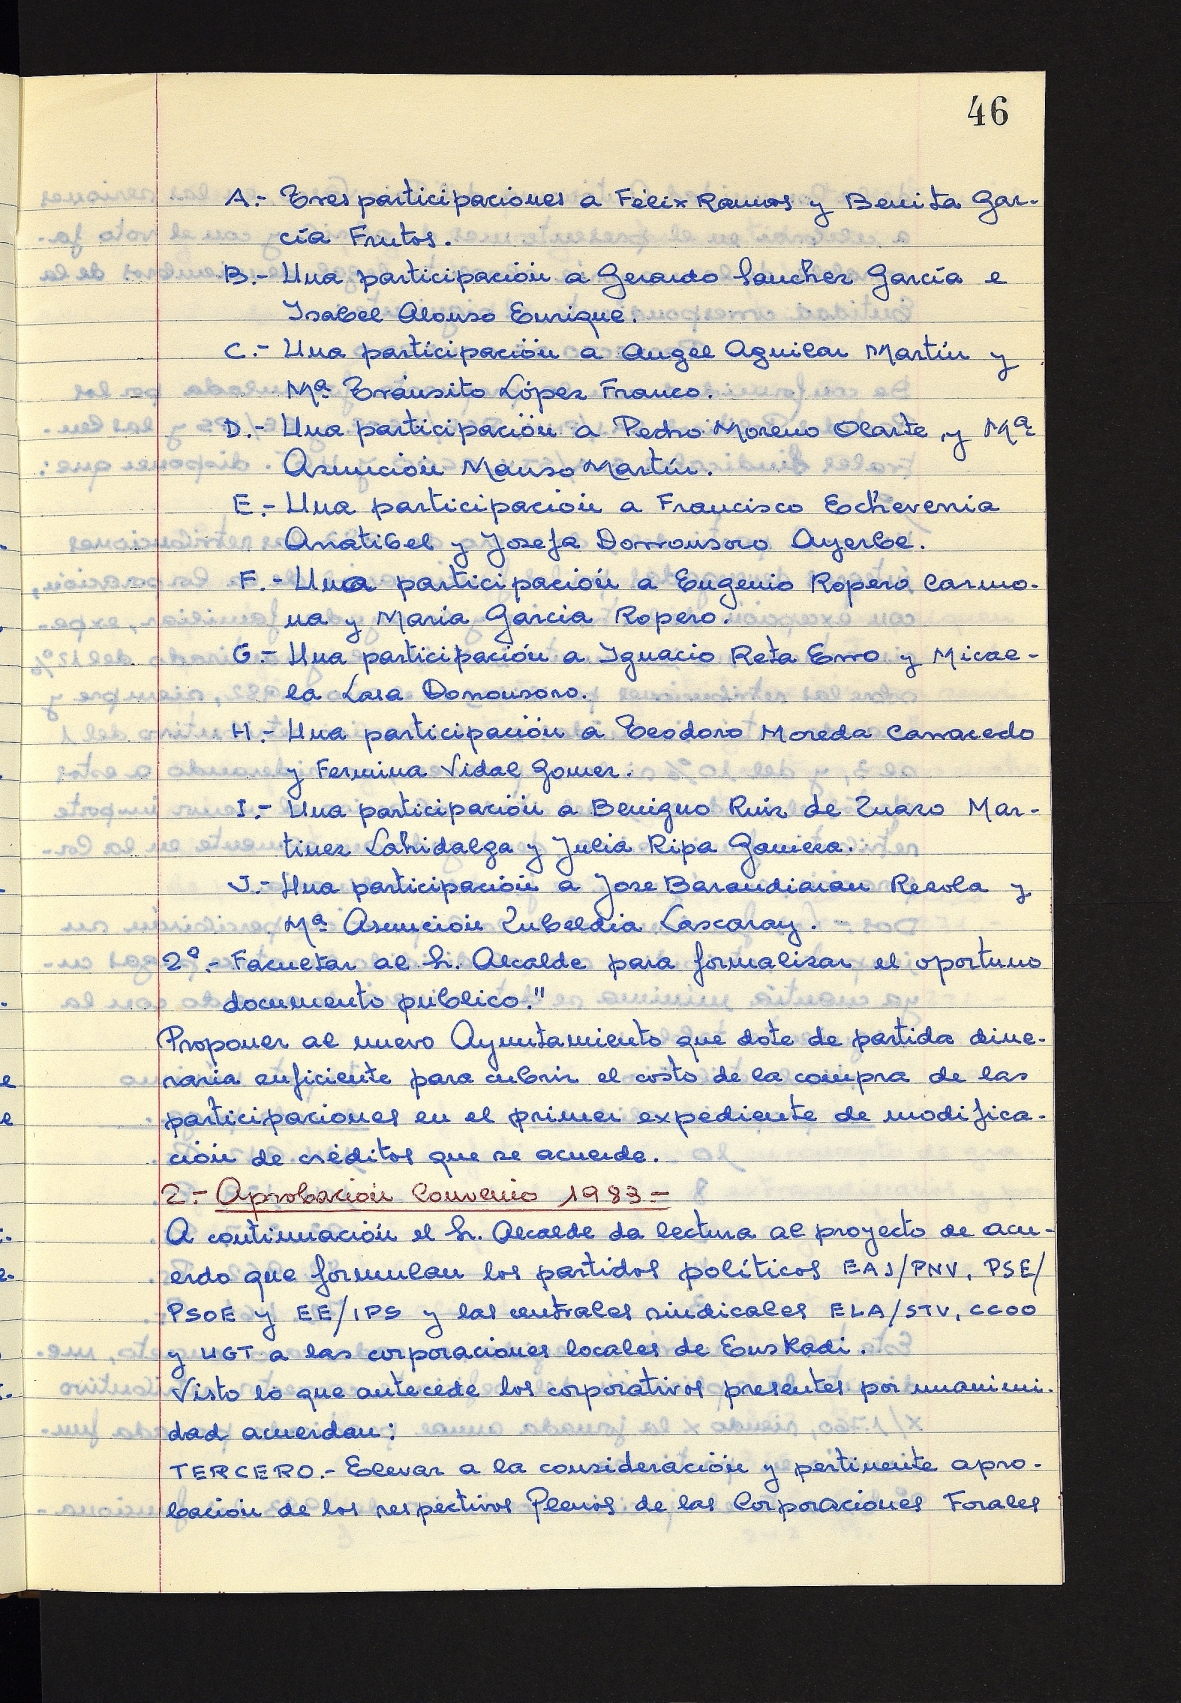 46
A.- Tres participaciones a Félix Ramos y Benita Gar-
cía Frutos.
B.- Una participación a Gerardo Sanchez García e
Isabel Alonso Enrique.
C.- Una participación a Angel Aguilar Martín y
Mª Tránsito López Franco.
D.- Una participación a Pedro Moreno Olarte y Mª
Asunción Manso Martín.
E.- Una participación a Francisco Echeverria
Arratibel y Josefa Dorronsoro Ayerbe.
F.- Una participación a Eugenio Ropero Carmo-
na y Maria Garcia Ropero.
G.- Una participación a Ignacio Reta Erro y Micae-
la Lasa Dorronsoro.
H.- Una participación a Teodoro Moreda Carracedo
y Fermina Vidal Gomez.
I.- Una participación a Benigno Ruiz de Zuazo Mar-
tinez Lahidalga y Julia Ripa
J.- Una participación a Jose Barandiaran Rezola y
Mª Asuncion Zubeldia Lascaray.-
2º.- Facultar al Sr. Alcalde para formalizar el oportuno
documento público."
Proponer al nuevo Ayuntamiento que dote de partida dine-
raria suficiente para cubrir el costo de la compra de las
participaciones en el primer expediente de modifica-
ción de créditos que se acuerde.
2.- Aprobación Convenio 1983-
A continuación el Sr. Alcalde da lectura al proyecto de acu-
erdo que formulan los partidos políticos EAJ/PNV, PSE/
PSOE y EE/IPS y las centrales sindicales ELA/STV, CCOO
y UGT a las corporaciones locales de Euskadi.
Visto lo que antecede los corporativos presentes por unanimi-
dad acuerdan:
TERCERO.- Elevar a la consideración y pertinente apro-
bación de los respectivos Plenos de las Corporaciones Forales